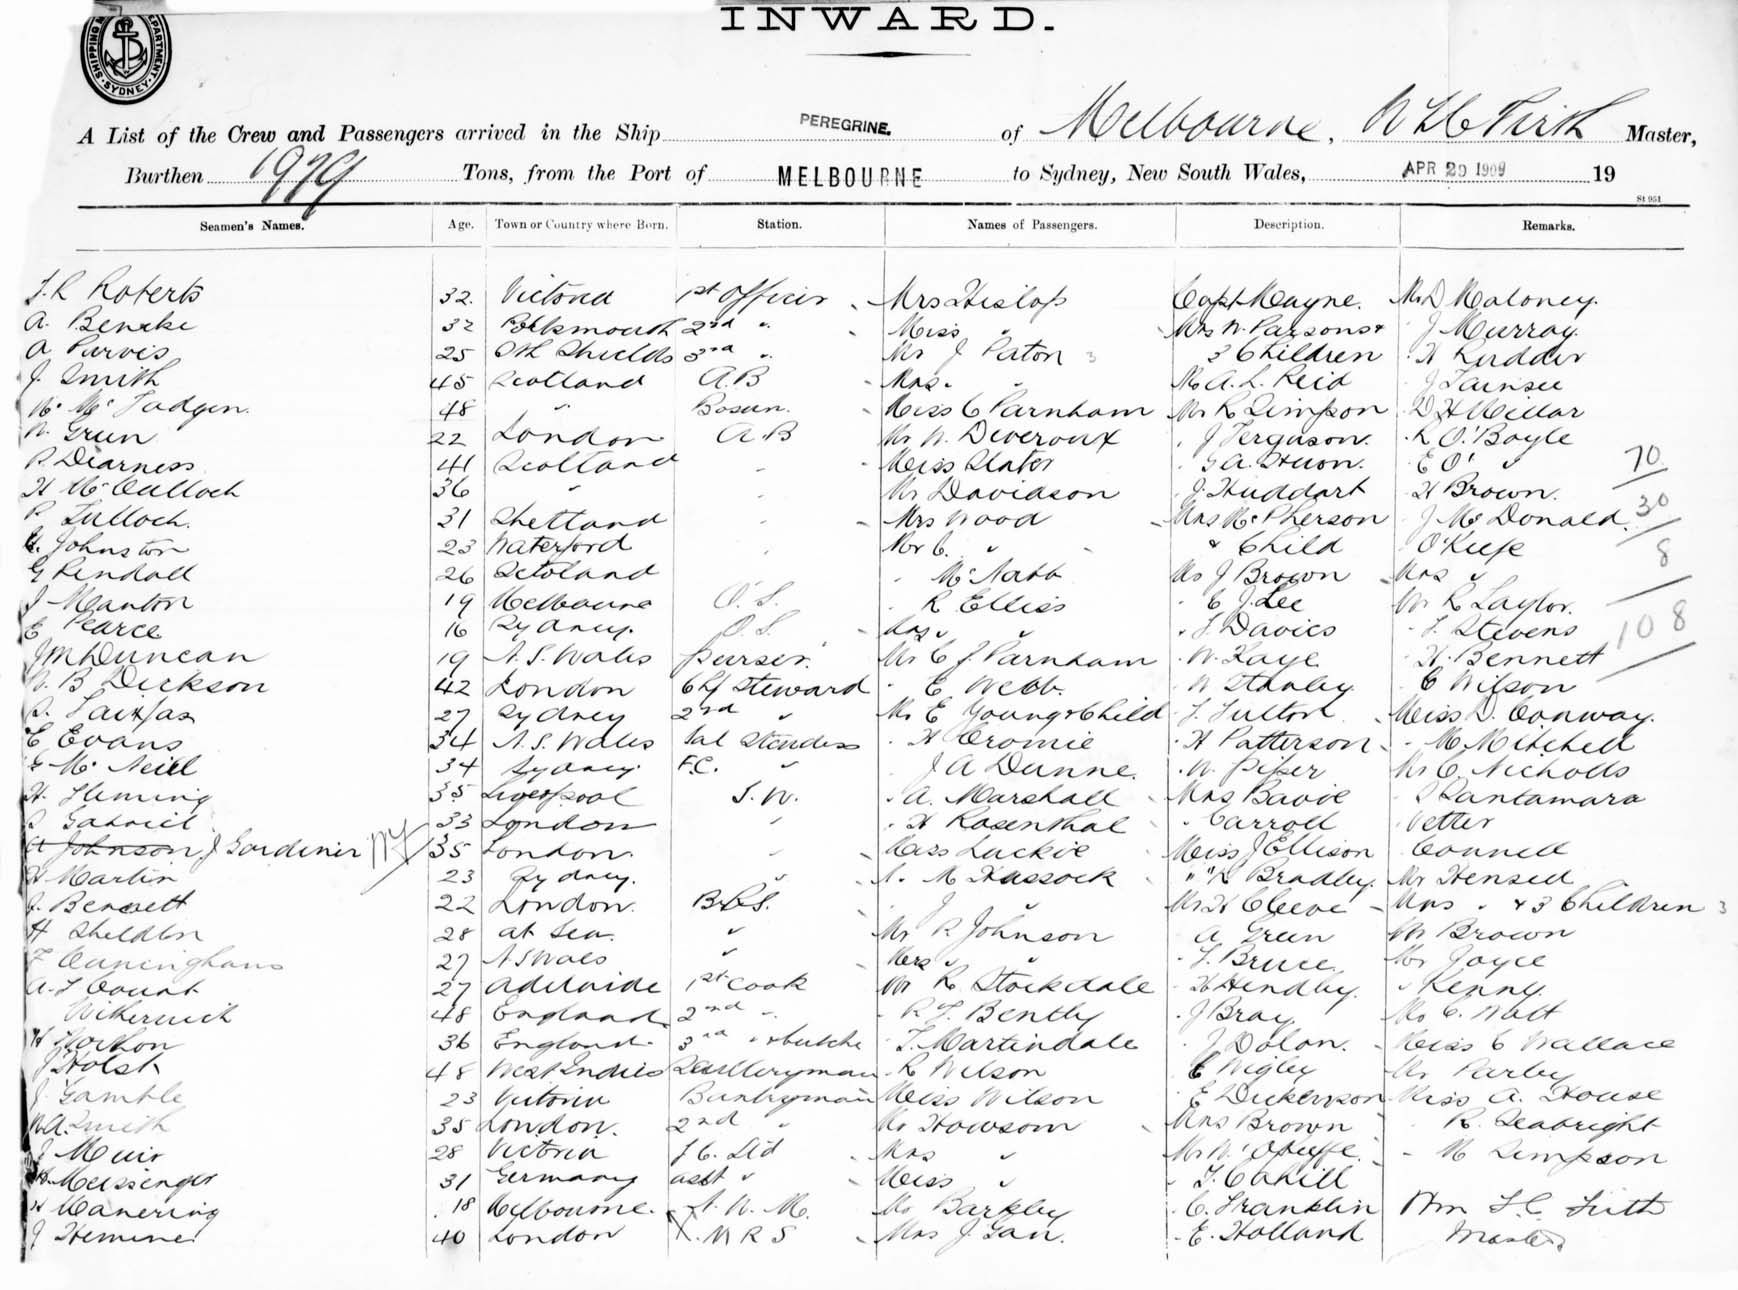 INWARD.
SHIPPING DEPARTMENT. SYDNEY.
A List of the Crew and Passengers arrived in the Ship PEREGRINE. of Melbourne, Firth Master,
Burthen 1979 Tons, from the Port of MELBOURNE to Sydney, New South Wales, APR 20 1909 19
St 951
Seamen's Names. Age. Town or Country where Born. Station. Names of Passengers. Description. Remarks.
Roberts 32. Victoria 1st Officer Mrs Hislop Capt Mayne. Mr D Maloney.
A. Benske 32 2nd " Miss " Mrs W. Parsons &
J Murray.
A Purvis 25 Sth Shields 3rd " Mr J Paton 3 3 Children H Kudder
J. Smith 45 Scotland A.B Mrs " " Mr A. L. Reid
48 " Bosun. Miss C Parnham Mr R Simpson D H Millar
W. Green 22 London A.B Mr W. Deveroux J Ferguson. R O'Boyle
P. Dearness 41 Scotland " Miss Slater G A. Huon. E O' " 70
H McCulloch 36 " " Mr Davidson J. Huddart H Brown.
P Tulloch. 31 Shetland " Mrs Wood Mrs McPherson J McDonald. 30
Johnston 23 Waterford " Mr C. " & Child O'Keefe 8
G Rendall 26 Scotland McNabb Mr J Brown Mrs "
J Manton 19 Melbourne O.S. R Elliss C J. Lee Mr R Taylor.
E Pearce 16 Sydney. O.S. Mrs " " Davies Stevens 108
J M Duncan 19 N.S. Wales purser. Mr C J. Parnham W. Kaye H. Bennett
W. B Dickson 42 London Chf Steward E Webb. W Stanley C Wilson
Fairfax 27 Sydney 2nd " Mr E Young & Child Fulton Miss D. Conway.
E Evans 34 N.S. Wales Sal Stewdess H Cromie H Patterson M Mitchell
McNeill 34 Sydney F.C. " J A Dunne. W. Piper Mr C. Nicholls
H. Fleming 35 Liverpool S.W. A. Marshall Mrs Bavie Santamara
Gabriel 33 London " H Rosenthal Carroll Vetter
Johnson J Gardiner 35 London. " Miss Luckie Miss J Ellison Connell
H Martin 23 Sydney. " M Hassock " " Bradley. Mr Hensell
J. Bennett 22 London. B.R.S. J " Mr H Cleeve Mrs " & 3 Children 3
H Sheldon 28 at Sea. " Mr R Johnson A Green Mr Brown
Cuninghams 27 N S Wales " Mrs " " Bruce Mr Joyce
27 Adelaide 1st Cook Mr R Stockdale H Hendley. " Kenny.
48 England 2nd " R. T. Bently J Bray Mr C. Watt
H Horton 36 England 3rd " & butche T. Martindale J Dolan. Miss C Wallace
J Holst 48 West Indies R Wilson E Wigley Mr Parby
J. Gamble 23 Victoria Miss Wilson E Dickenson Miss A. House
W.A. Smith 35 London. 2nd " Mr Howsom Mrs Brown R. Seabright
J Muir 28 Victoria Mrs " Mr W. O'Keeffe. M Simpson
Meissenger 31 Germany asst " Miss " Cahill
H Manering 18 Melbourne. Mr Barkley C. Franklin Wm F. C. Firth
J Hemine 40 London Mrs J. Gan. E. Holland Master